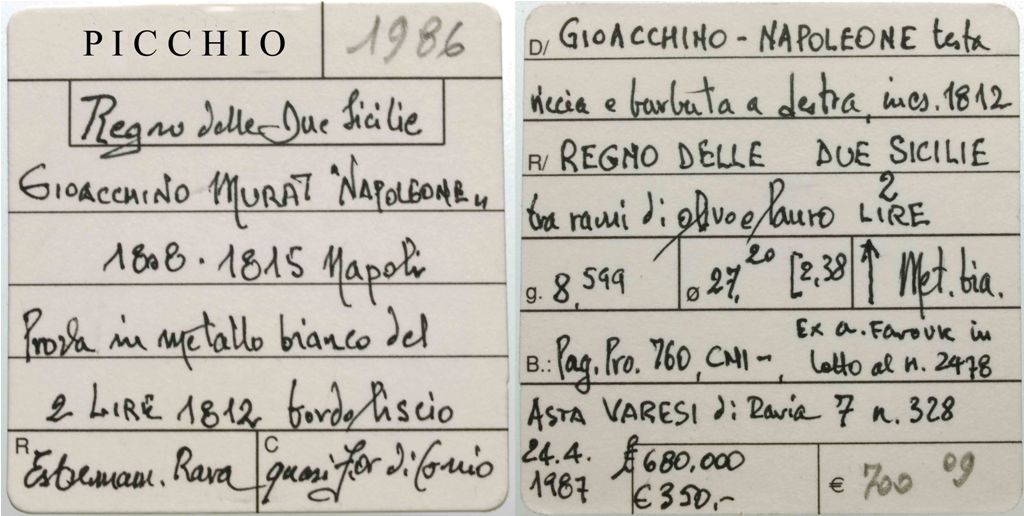 PICCHIO 1986
Regno delle Due Sicilie
GIOACCHINO MURAT "NAPOLEONE"
1808 · 1815 Napoli
Prova in metallo bianco del
2 LIRE 1812 bordo liscio
R Estremam. Rara C quasi Fior di Conio
D/ GIOACCHINO - NAPOLEONE testa
riccia e barbuta a destra, incs. 1812
R/ REGNO DELLE DUE SICILIE
tra rami di olivo e lauro 2 LIRE
g. 8,599 ø 27,20 [2,38 ↑ Met. bia.
B.: Pag. Pro. 760, CNI -, Ex a. Farouk in
lotto al n. 2478
ASTA VARESI di Pavia 7 n. 328
24.4. £ 680,000
1987 € 350,- € 700 09